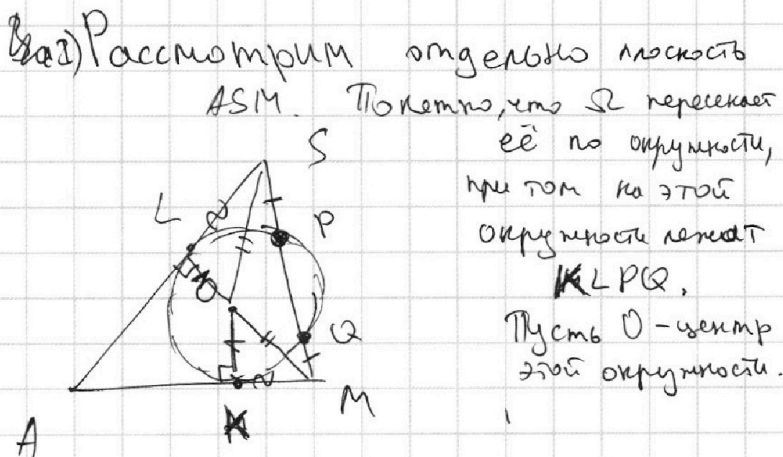 а1) Рассмотрим отдельно плоскость
ASM. Понятно, что Ω пересекает
её по окружности,
при том на этой
окружности лежат
KLPQ.
Пусть O - центр
этой окружности.
S
L
P
O
Q
A
K
M